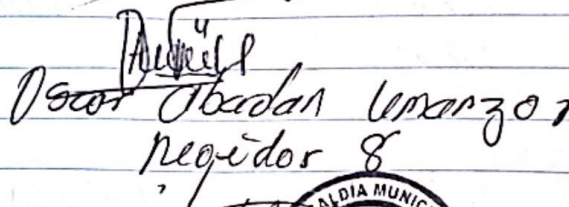 Oscar Obadan Umanzor
Regidor 8
ALDIA MUNIC